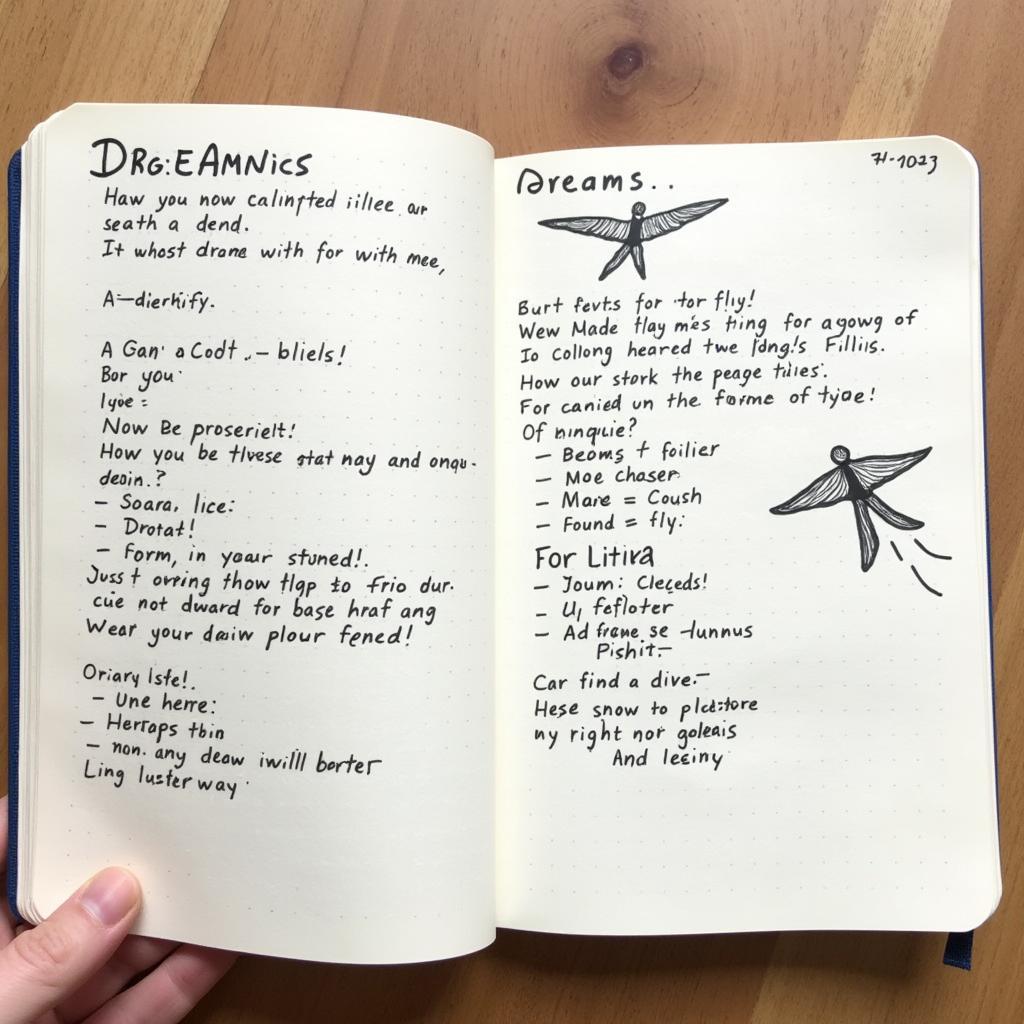 DRG:EAMNICS
Haw you now calinfted iillee our
seath a dend.
It whost drane with for with mee,
A—dierhify.
A Gan' a Codt .— bliels!
Bor you
lyoe =
Now Be proserielt!
How you be tlvese stat nay and onqu-
deoin.?
– Soara, lice:
– Drotat!
– Form, in yoaur stuned!.
Juss t ovring thow tlgp to frio dur.
cue not dward for base hraf ang
Wear your daiiw plour fened!
Oriary lste!.
– Une herre:
– Herraps tbin
– non. any deow iwilll borter
Ling luster way
Dreams..
71-1023
Burt fevts for tor fliy!
Wew Made tlay mes thing for agowg of
Io Collong heared twe Fillis.
How our stork the peage tiiles.
For canied un the forme of tyoe!
Of ninquie?
– Beoms t foilier
– Moe chaser
– Mare = Coush
– Found = fly:
For Litira
– Joum: Cleceds!
– U, fefloter
– Ad frame se -lunnus
Pishit–
Car find a dive.–
Hese snow to
ny right nor goleais
And leciny